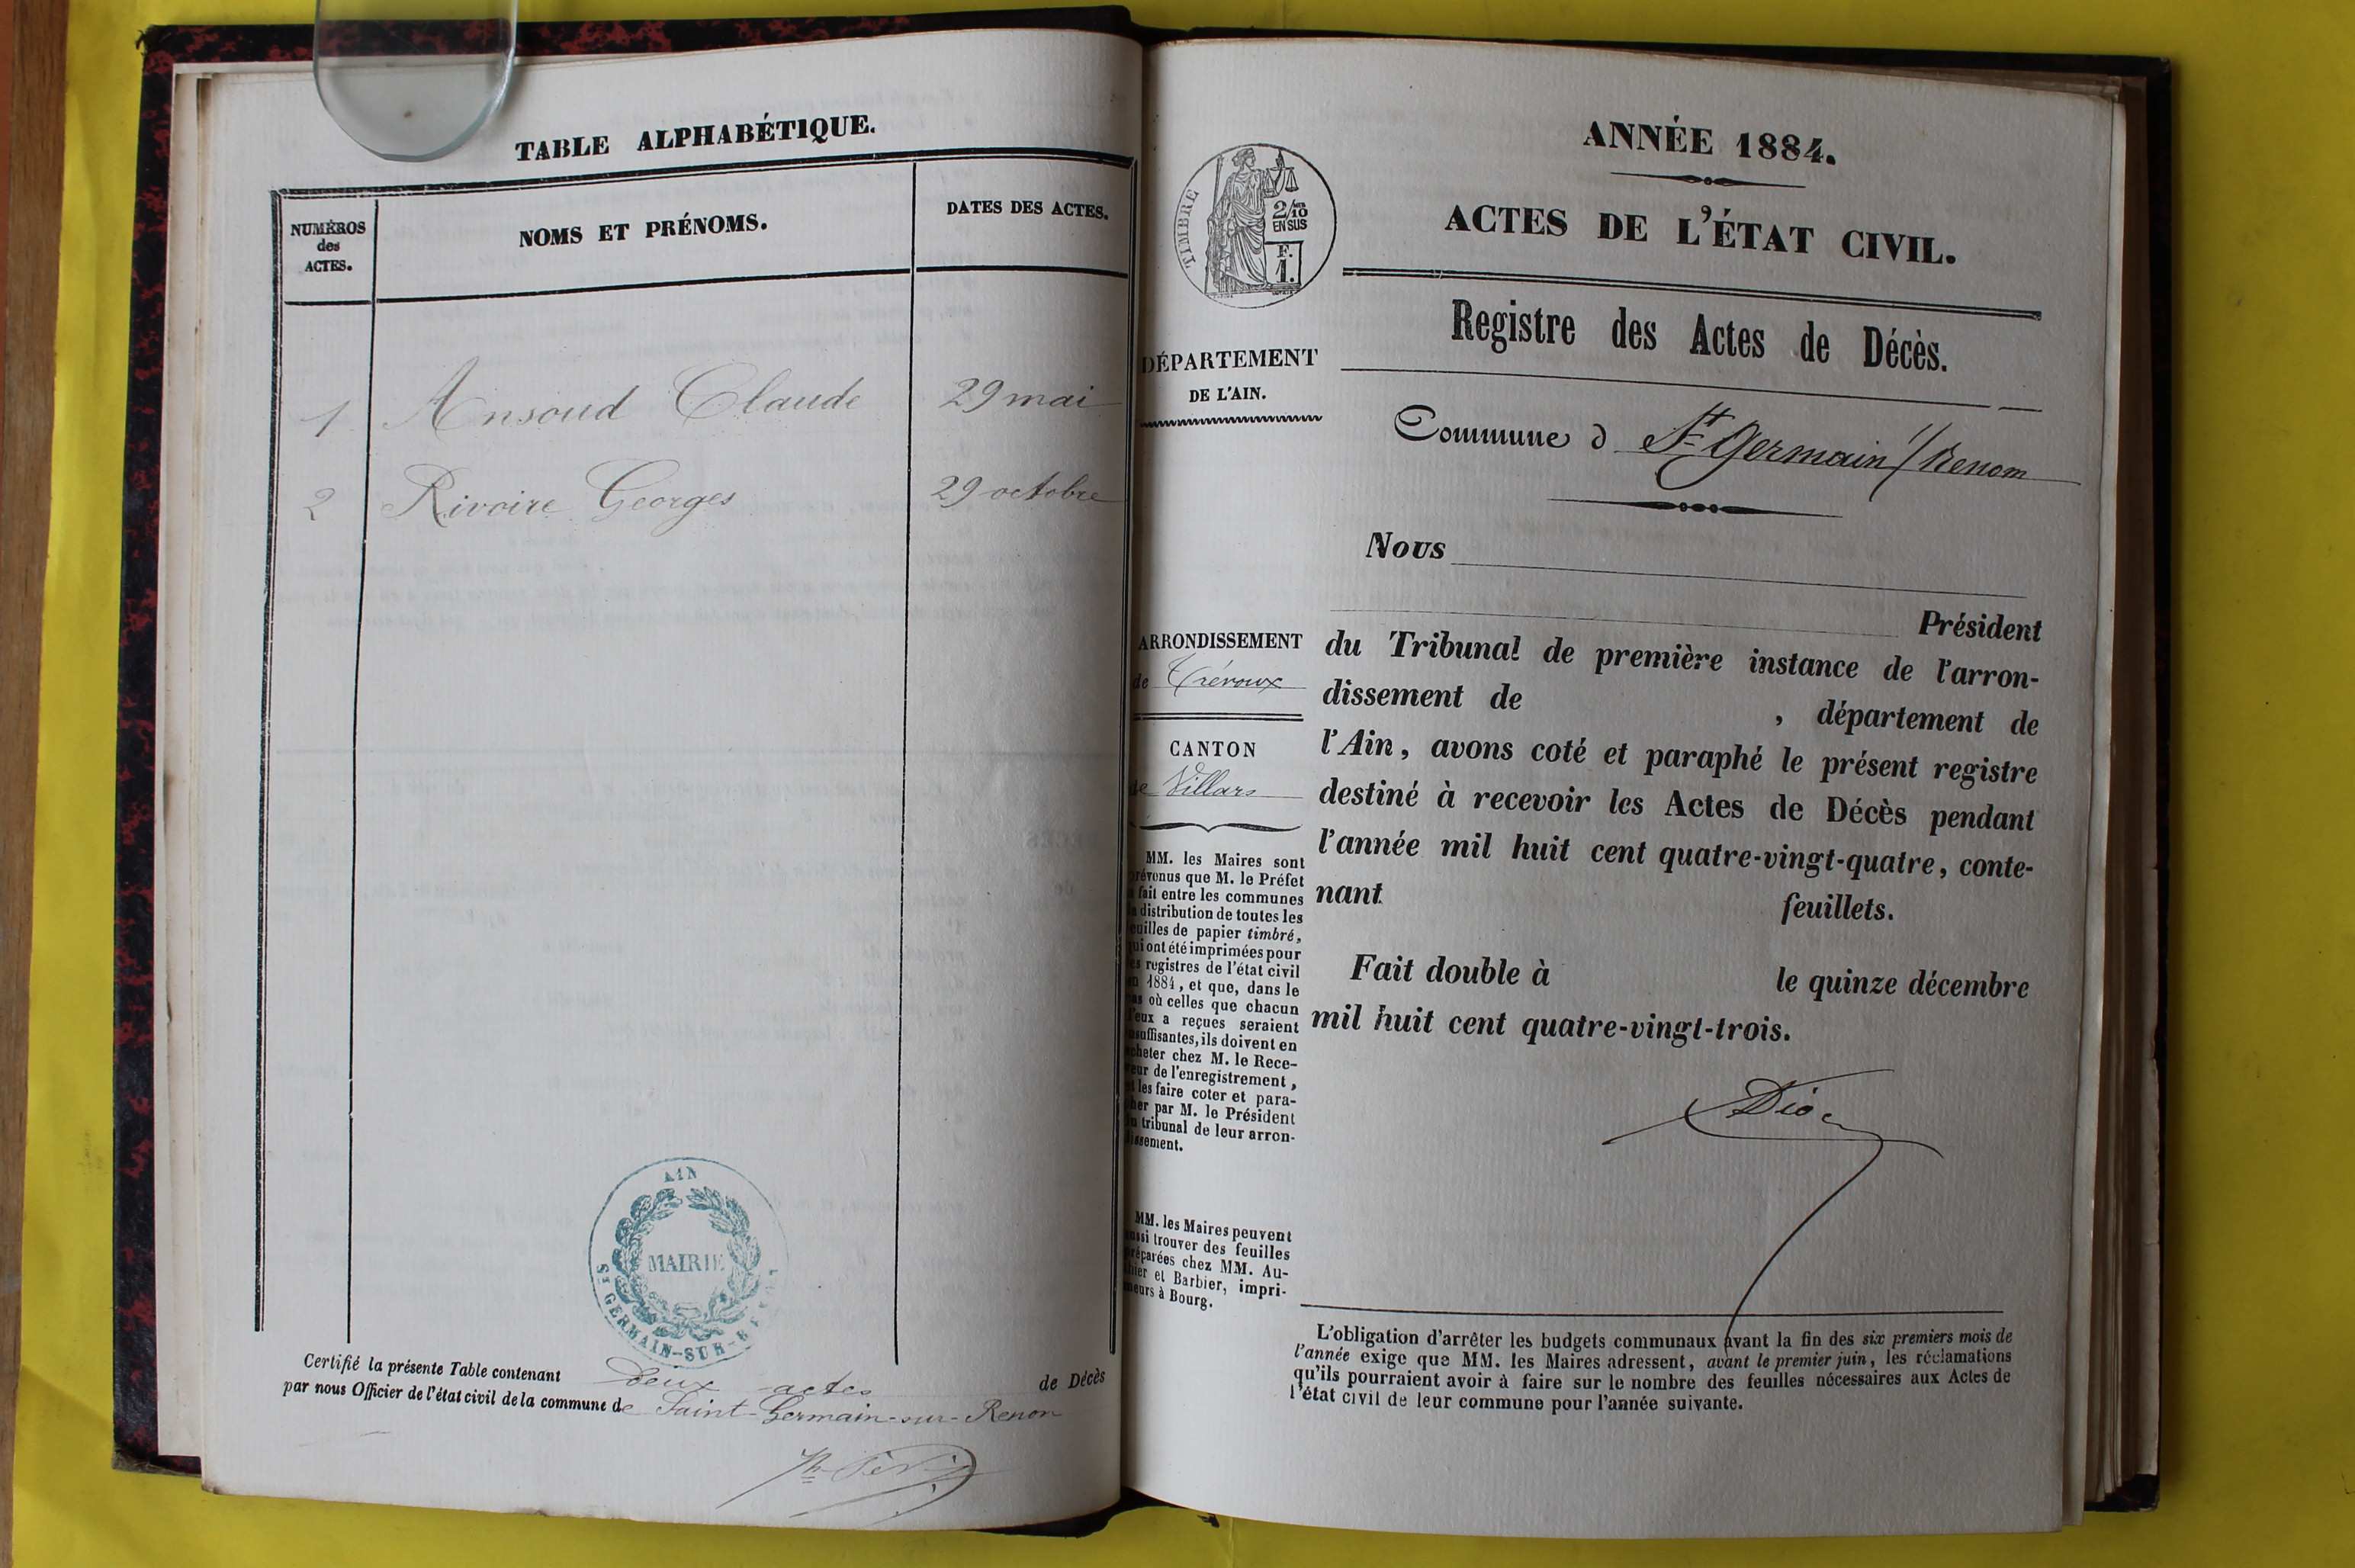 TABLE ALPHABÉTIQUE.
NUMÉROS
des
ACTES.
NOMS ET PRÉNOMS.
DATES DES ACTES.
1 Ansoud Claude 29 mai
2 Rivoire Georges 29 octobre
AIN
MAIRIE
ST GERMAIN-SUR-
Certifié la présente Table contenant deux actes de Décès
par nous Officier de l'état civil de la commune de Saint-Germain-sur-Renon
ANNÉE 1884.
ACTES DE L'ÉTAT CIVIL.
TIMBRE
2/10
EN SUS
F.
1.
Registre des Actes de Décès.
DÉPARTEMENT
DE L'AIN.
Commune d St Germain s/ Renom
Nous
Président
ARRONDISSEMENT
de Trévoux
CANTON
de Villars
du Tribunal de première instance de l'arron-
dissement de , département de
l'Ain, avons coté et paraphé le présent registre
destiné à recevoir les Actes de Décès pendant
l'année mil huit cent quatre-vingt-quatre, conte-
nant feuillets.
Fait double à le quinze décembre
mil huit cent quatre-vingt-trois.
MM. les Maires sont
prévenus que M. le Préfet
a fait entre les communes
la distribution de toutes les
feuilles de papier timbré,
qui ont été imprimées pour
les registres de l'état civil
en 1884, et que, dans le
cas où celles que chacun
d'eux a reçues seraient
insuffisantes, ils doivent en
acheter chez M. le Rece-
veur de l'enregistrement,
et les faire coter et para-
pher par M. le Président
du tribunal de leur arron-
dissement.
MM. les Maires peuvent
aussi trouver des feuilles
préparées chez MM. Au-
thier et Barbier, impri-
meurs à Bourg.
L'obligation d'arrêter les budgets communaux avant la fin des six premiers mois de
l'année exige que MM. les Maires adressent, avant le premier juin, les réclamations
qu'ils pourraient avoir à faire sur le nombre des feuilles nécessaires aux Actes de
l'état civil de leur commune pour l'année suivante.